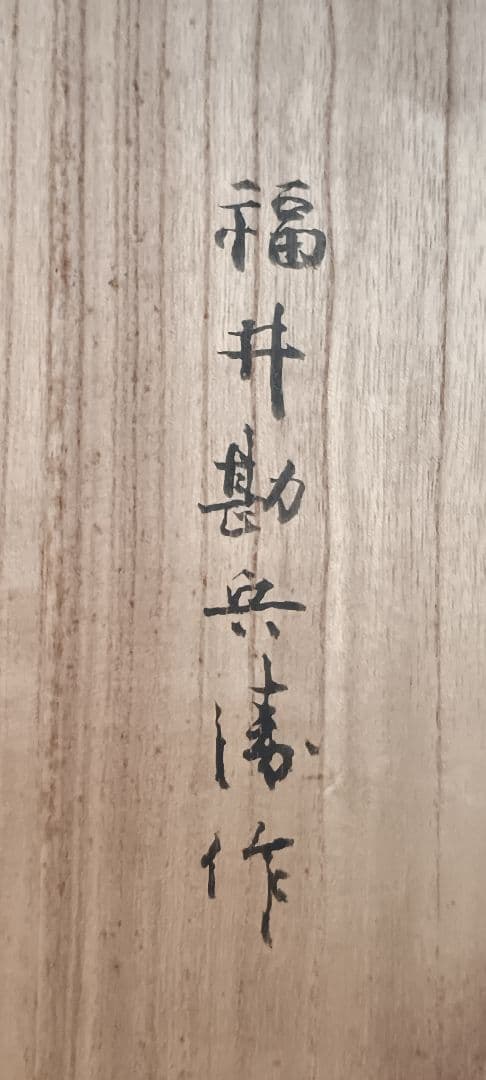 福井勘兵衛作